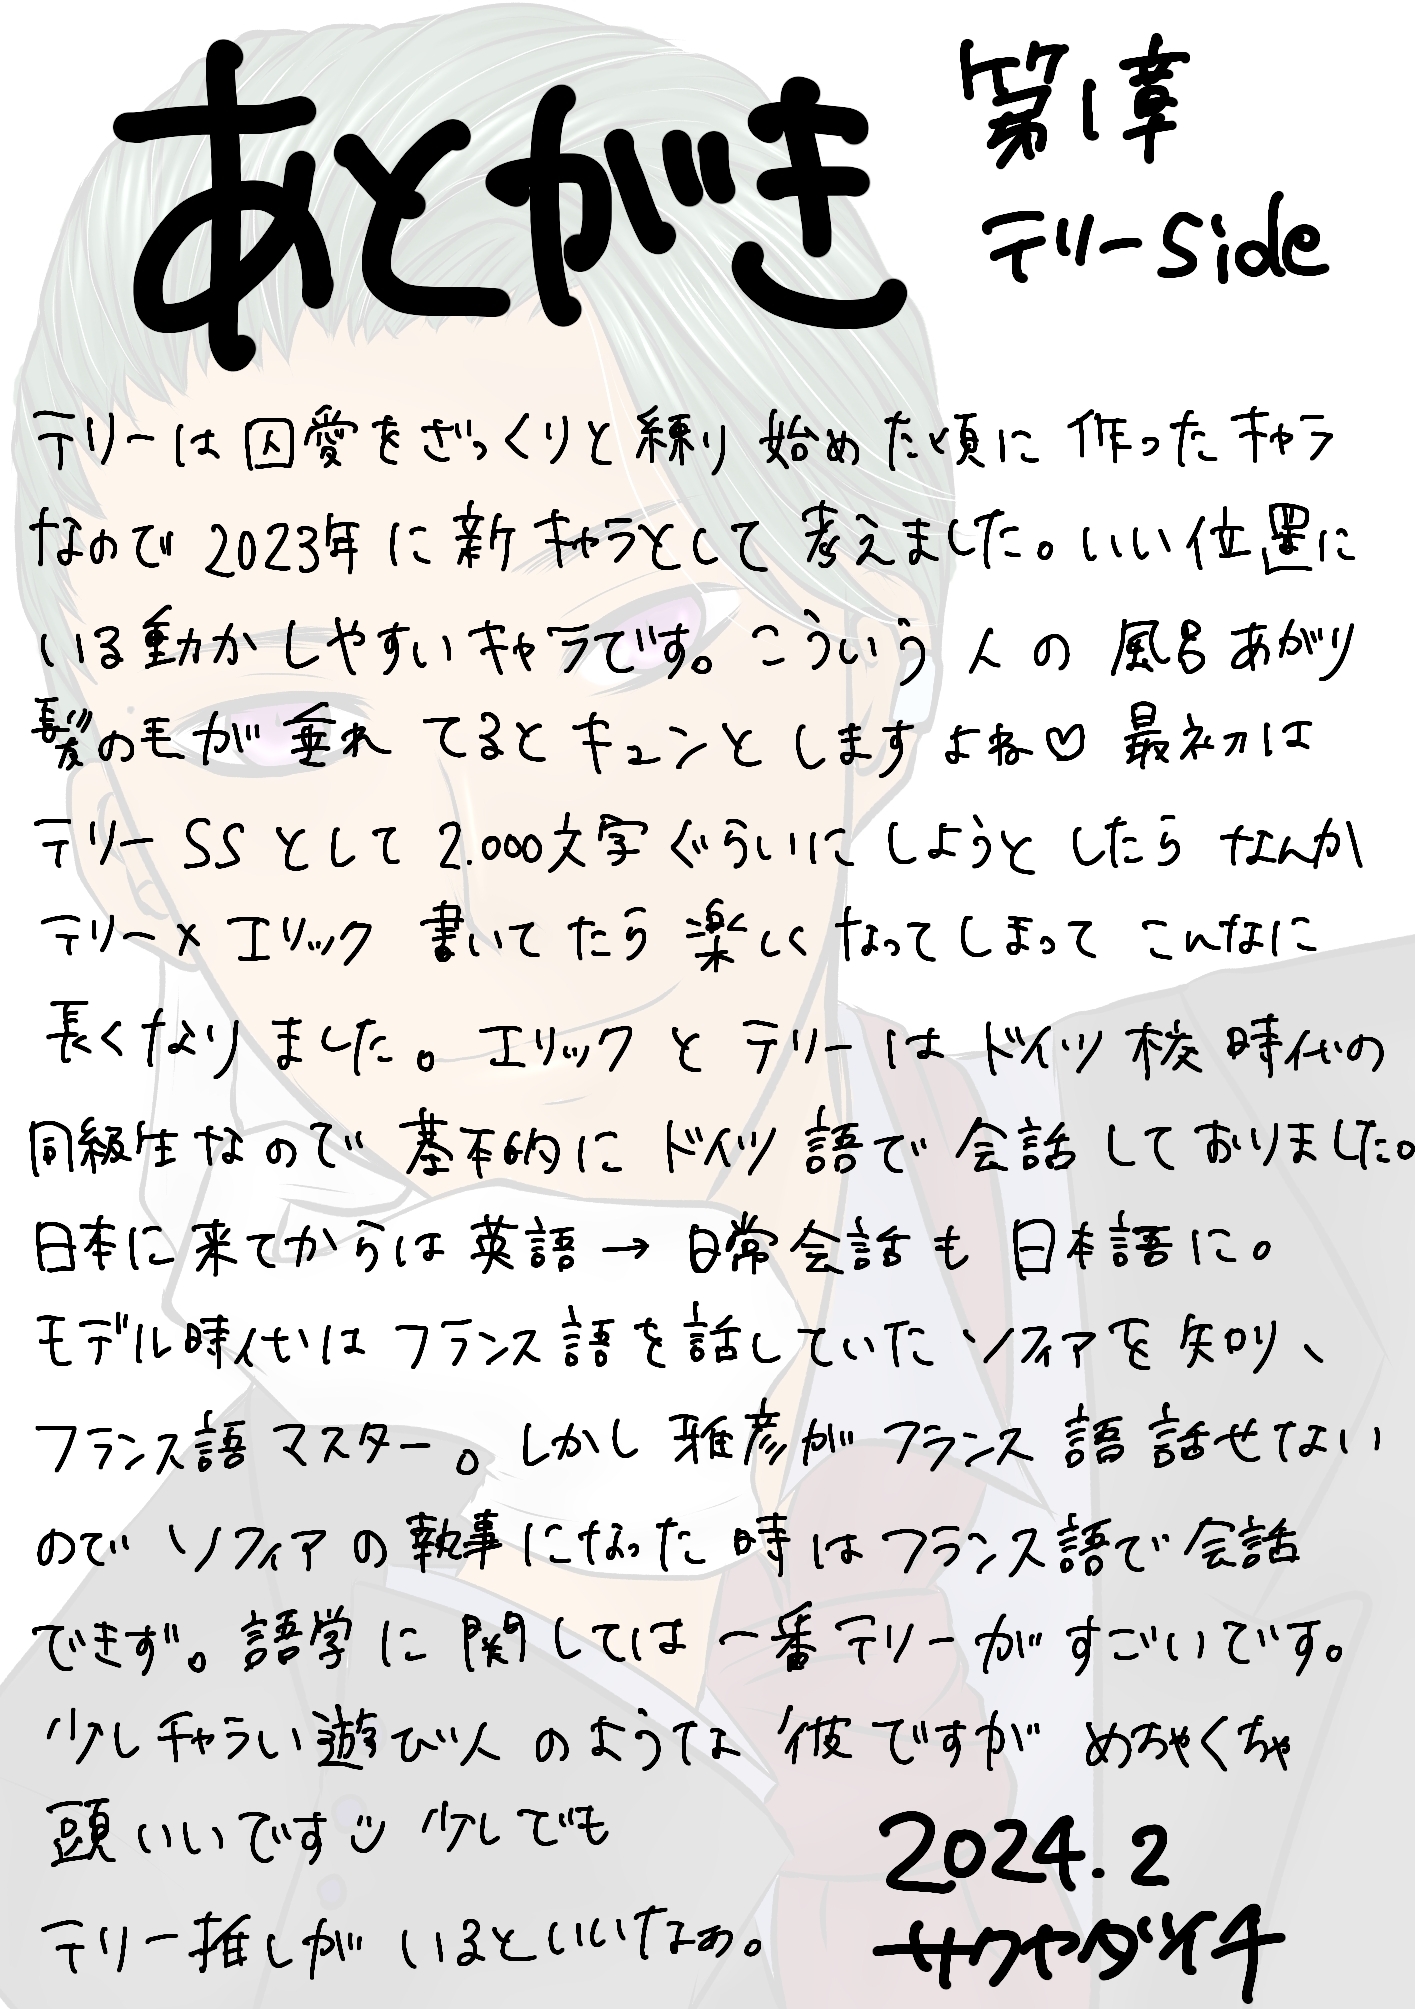 あとがき
第1章
テリーside
テリーは囚愛をざっくりと練り始めた頃に作ったキャラ
なので2023年に新キャラとして考えました。いい位置に
いる動かしやすいキャラです。こういう人の風呂あがり
髪の毛が垂れてるとキュンとしますよね♡最初は
テリーSSとして2.000文字ぐらいにしようとしたらなんか
テリー×エリック書いてたら楽しくなってしまってこんなに
長くなりました。エリックとテリーはドイツ校時代の
同級生なので基本的にドイツ語で会話しておりました。
日本に来てからは英語→日常会話も日本語に。
モデル時代はフランス語を話していたソフィアを知り、
フランス語マスター。しかし雅彦がフランス語話せない
のでソフィアの執事になった時はフランス語で会話
できず。語学に関しては一番テリーがすごいです。
少しチャラい遊び人のような彼ですがめちゃくちゃ
頭いいです 少しでも
テリー推しがいるといいなぁ。
2024.2
サクヤダイチ